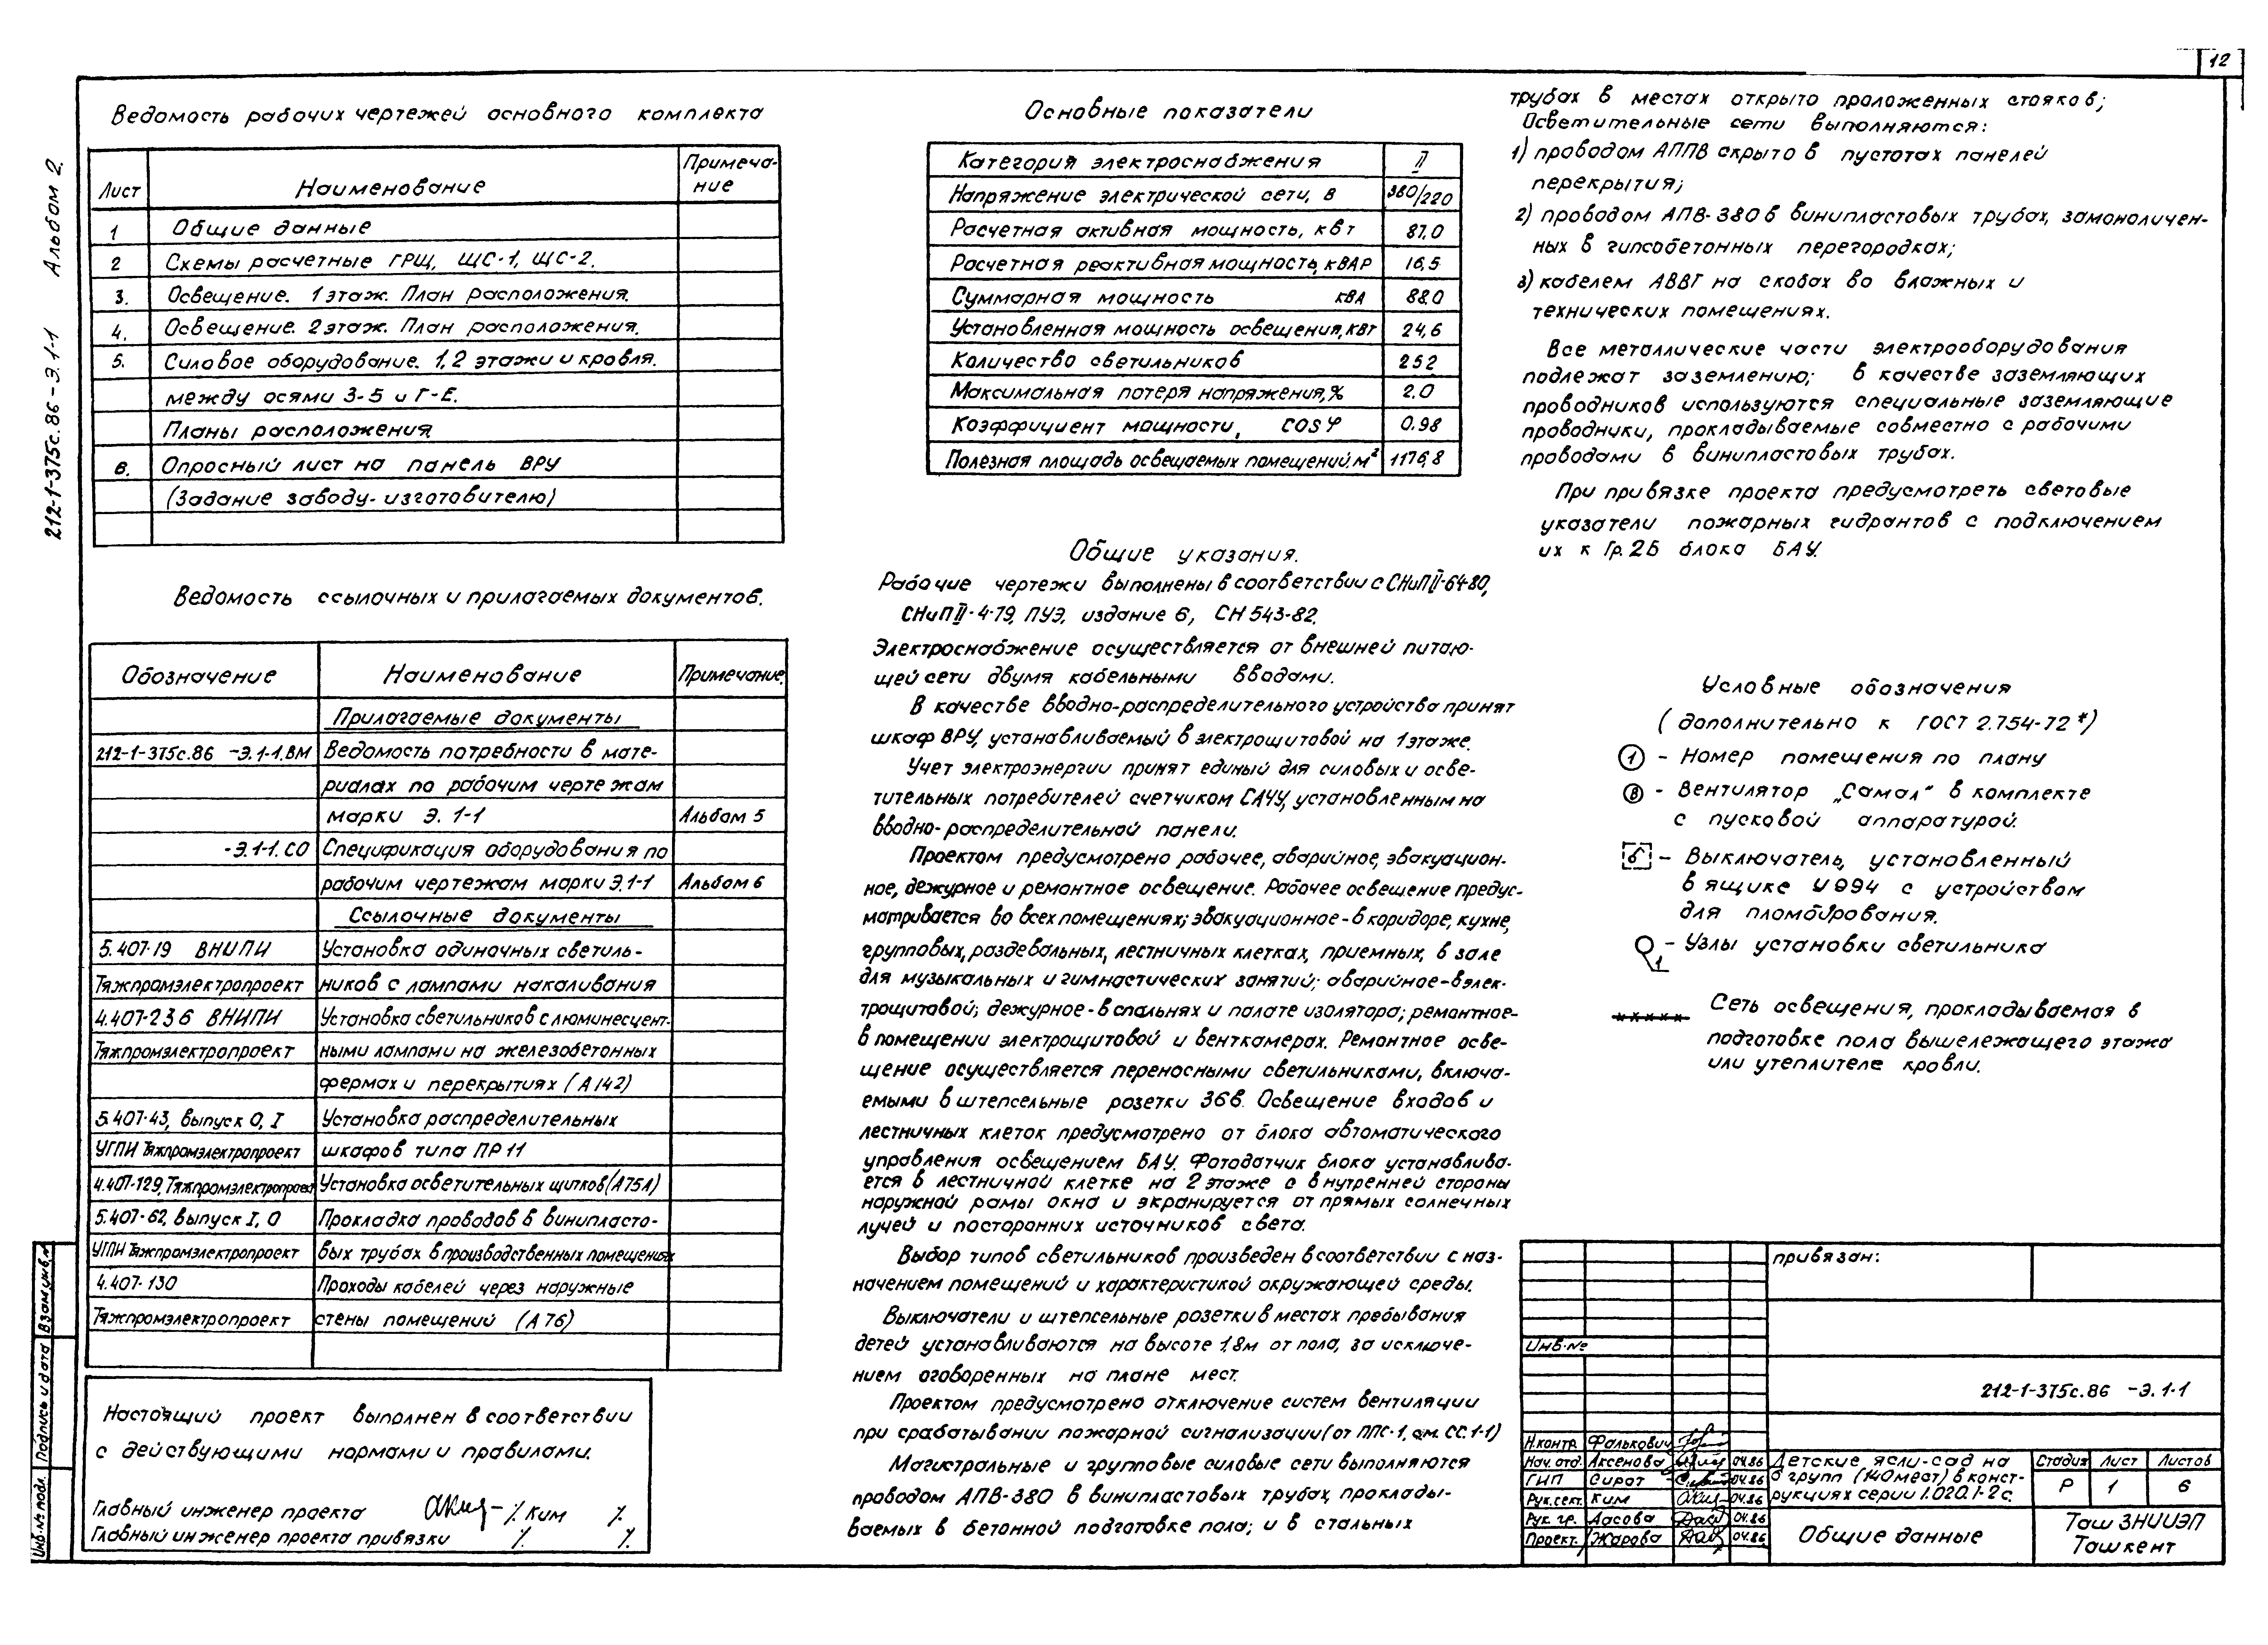 12
Альбом 2.
212-1-375с.86 -Э.1-1
Ведомость рабочих чертежей основного комплекта
Лист Наименование Примеча-
ние
1 Общие данные
2 Схемы расчетные ГРЩ, ЩС-1, ЩС-2.
3. Освещение. 1 этаж. План расположения.
4. Освещение. 2 этаж. План расположения.
5. Силовое оборудование. 1,2 этажи и кровля.
между осями 3-5 и Г-Е.
Планы расположения
6. Опросный лист на панель ВРУ
(Задание заводу-изготовителю)
Ведомость ссылочных и прилагаемых документов.
Обозначение Наименование Примечание
Прилагаемые документы
212-1-375с.86 -Э.1-1.ВМ Ведомость потребности в мате-
риалах по рабочим чертежам
марки Э. 1-1 Альбом 5
-Э.1-1. СО Спецификация оборудования по
рабочим чертежам марки Э.1-1 Альбом 6
Ссылочные документы
5.407-19 ВНИПИ Установка одиночных светиль-
Тяжпромэлектропроект ников с лампами накаливания
4.407-236 ВНИПИ Установка светильников с люминесцент-
Тяжпромэлектропроект ными лампами на железобетонных
фермах и перекрытиях (А142)
5.407-43, выпуск 0, I Установка распределительных
УГПИ Тяжпромэлектропроект шкафов типа ПР 11
4.407-129, Тяжпромэлектропроект Установка осветительных щитков (А75Л)
5.407-62, выпуск I, 0 Прокладка проводов в винипласто-
УГПИ Тяжпромэлектропроект вых трубах в производственных помещениях
4.407-130 Проходы кабелей через наружные
Тяжпромэлектропроект стены помещений (А 76)
Настоящий проект выполнен в соответствии
с действующими нормами и правилами.
Главный инженер проекта / Ким /.
Главный инженер проекта привязки /. /.
Взам.инв.№
Подпись и дата
Инв.№ подл.
Основные показатели
Категория электроснабжения II
Напряжение электрической сети, В 380/220
Расчетная активная мощность, кВт 87.0
Расчетная реактивная мощность, кВАР 16,5
Суммарная мощность кВА 88.0
Установленная мощность освещения, кВт 24,6
Количество светильников 252
Максимальная потеря напряжения, % 2.0
Коэффициент мощности, COS φ 0.98
Полезная площадь освещаемых помещений, м² 1176,8
Общие указания.
Рабочие чертежи выполнены в соответствии с СНиП II-64-80,
СНиП II-4-79, ПУЭ, издание 6, СН 543-82.
Электроснабжение осуществляется от внешней питаю-
щей сети двумя кабельными вводами.
В качестве вводно-распределительного устройства принят
шкаф ВРУ, устанавливаемый в электрощитовой на 1 этаже.
Учет электроэнергии принят единый для силовых и осве-
тительных потребителей счетчиком САЧУ, установленным на
вводно-распределительной панели.
Проектом предусмотрено рабочее, аварийное, эвакуацион-
ное, дежурное и ремонтное освещение. Рабочее освещение предус-
матривается во всех помещениях; эвакуационное - в коридоре, кухне,
групповых, раздевальных, лестничных клетках, приемных, в зале
для музыкальных и гимнастических занятий; аварийное - в элек-
трощитовой; дежурное - в спальнях и палате изолятора; ремонтное -
в помещении электрощитовой и венткамерах. Ремонтное осве-
щение осуществляется переносными светильниками, включа-
емыми в штепсельные розетки 36в. Освещение входов и
лестничных клеток предусмотрено от блока автоматического
управления освещением БАУ. Фотодатчик блока устанавлива-
ется в лестничной клетке на 2 этаже с внутренней стороны
наружной рамы окна и экранируется от прямых солнечных
лучей и посторонних источников света.
Выбор типов светильников произведен в соответствии с наз-
начением помещений и характеристикой окружающей среды.
Выключатели и штепсельные розетки в местах пребывания
детей устанавливаются на высоте 1,8м от пола, за исключе-
нием оговоренных на плане мест.
Проектом предусмотрено отключение систем вентиляции
при срабатывании пожарной сигнализации (от ППС-1, см. СС. 1-1)
Магистральные и групповые силовые сети выполняются
проводом АПВ-380 в винипластовых трубах, проклады-
ваемых в бетонной подготовке пола; и в стальных
трубах в местах открыто проложенных стояков;
Осветительные сети выполняются:
1) проводом АППВ скрыто в пустотах панелей
перекрытия;
2) проводом АПВ-380 в винипластовых трубах, замоноличен-
ных в гипсобетонных перегородках;
3) кабелем АВВГ на скобах во влажных и
технических помещениях.
Все металлические части электрооборудования
подлежат заземлению; в качестве заземляющих
проводников используются специальные заземляющие
проводники, прокладываемые совместно с рабочими
проводами в винипластовых трубах.
При привязке проекта предусмотреть световые
указатели пожарных гидрантов с подключением
их к Гр.2Б блока БАУ.
Условные обозначения
(дополнительно к ГОСТ 2.754-72*)
1 - Номер помещения по плану
В - Вентилятор „Самал" в комплекте
с пусковой аппаратурой.
- Выключатель, установленный
в ящике У994 с устройством
для пломбирования.
1 - Узлы установки светильника
Сеть освещения, прокладываемая в
подготовке пола вышележащего этажа
или утеплителе кровли.
привязан:
Инв.№
212-1-375с.86 -Э.1-1
Н.контр. Фалькович
Нач. отд. Аксенова 04.86
ГИП Сират 04.86
Рук.сект. Ким 04.86
Рук. гр. Аасова 04.86
Проект. Жарова 04.86
Детские ясли-сад на
6 групп (140мест) в конст-
рукциях серии 1.020.1-2с.
Стадия Лист Листов
Р 1 6
Общие данные
Таш ЗНИИЭП
Ташкент